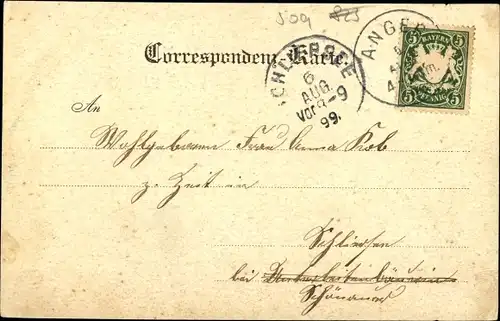 509 825
ANGER
Correspondenz-Karte.
BAYERN
5 5
5 PFENNIG 5
SCHLIERSEE
6
AUG.
Vor. 8-9
99.
An
Wohlgeboren Frau Anna Kob
z. Zeit in
Schliersee
bei